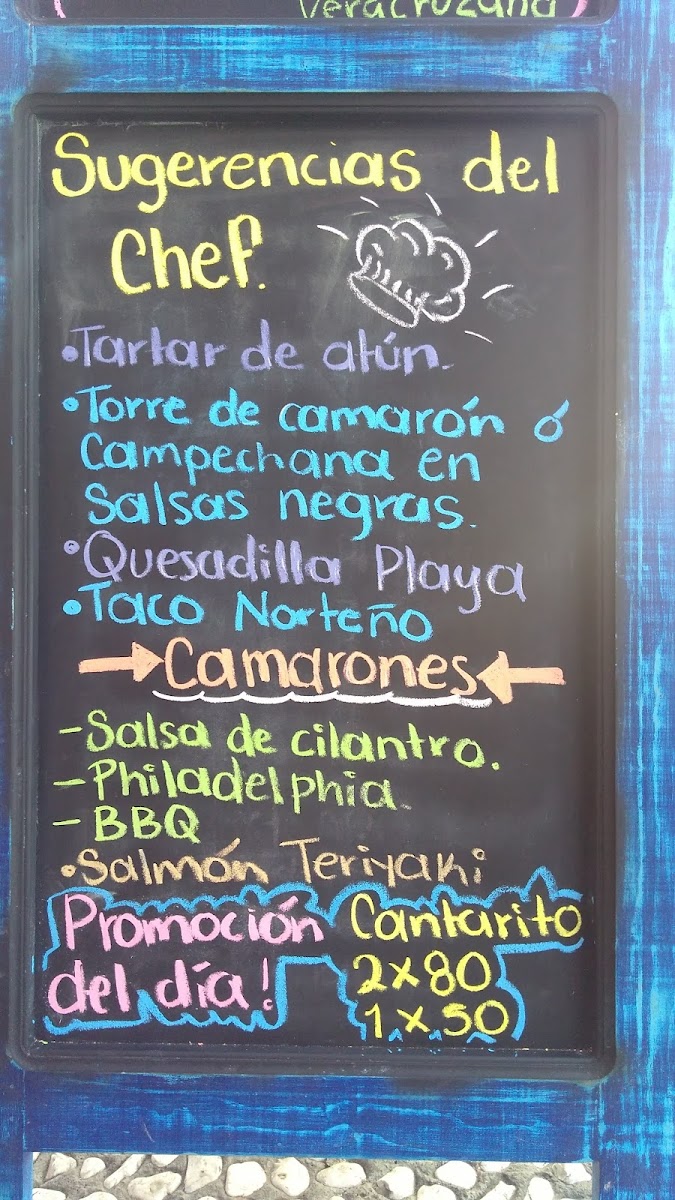 Veracruzana
Sugerencias del
Chef.
•Tartar de atún.
•Torre de camarón ó
Campechana en
Salsas negras.
•Quesadilla Playa
•Taco Norteño
→Camarones←
-Salsa de cilantro.
-Philadelphia
-BBQ
•Salmón Teriyaki
Promoción Cantarito
del día! 2x80
1x50